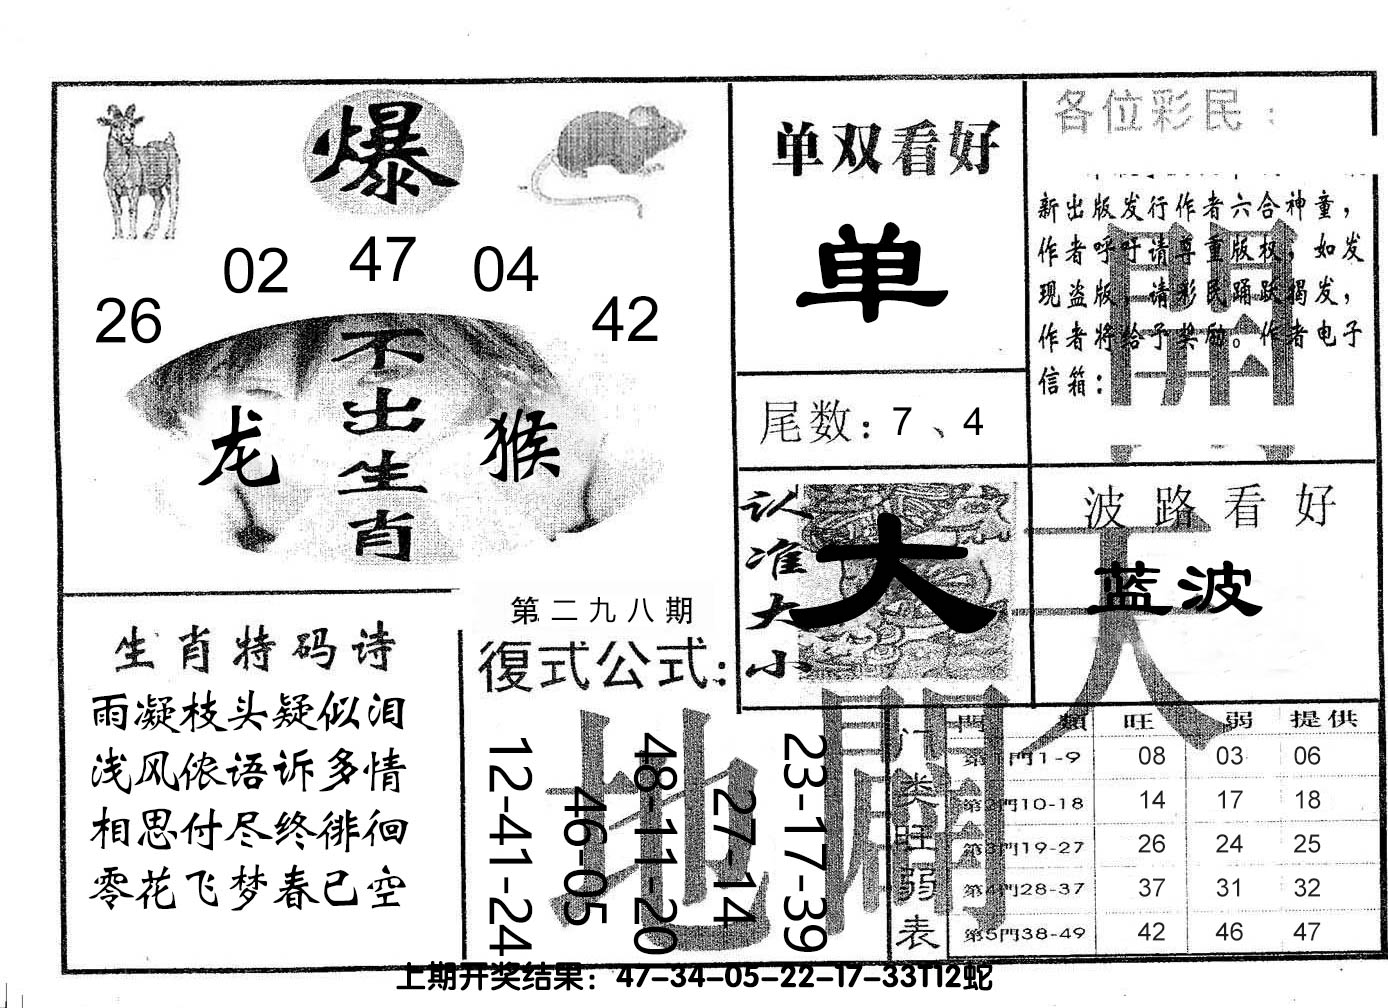 爆
02 47 04
26 42
不出生肖
龙 猴
单双看好
单
尾数：7、4
各位彩民：
新出版发行作者六合神童，
作者呼吁请尊重版权，如发
现盗版，请彩民踊跃揭发，
作者将给予奖励。作者电子
信箱：
認准大小
大
波路看好
蓝波
天
開
生肖特码诗
雨凝枝头疑似泪
浅风侬语诉多情
相思付尽终徘徊
零花飞梦春已空
第二九八期
復式公式：
12-41-24
46-05
48-11-20
27-14
23-17-39
地
開
门类旺弱表
門類 旺 弱 提供
第1門1-9 08 03 06
第2門10-18 14 17 18
第3門19-27 26 24 25
第4門28-37 37 31 32
第5門38-49 42 46 47
上期开奖结果：47-34-05-22-17-33T12蛇